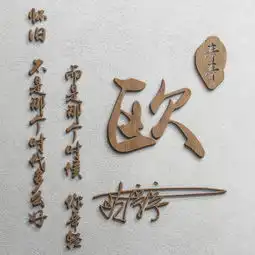 怀旧 不是那个时代多么好
而是那个时候 你年轻
欧